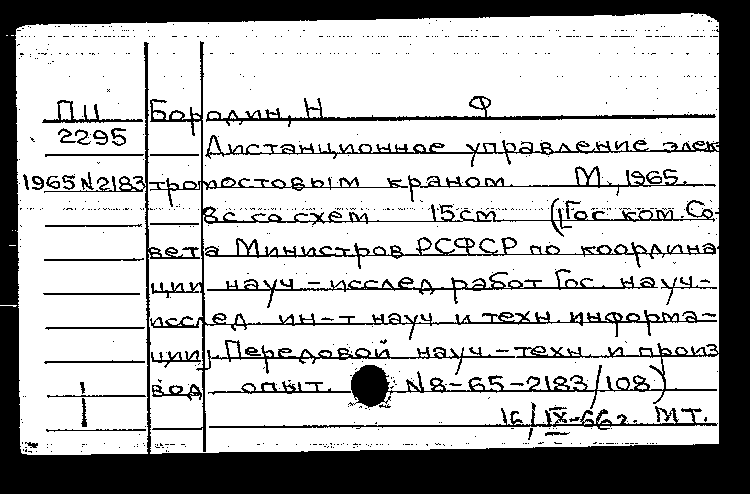 П11 Бородин, Н Ф
2295 Дистанционное управление элек
1965 N2183 тромостовым краном. М., 1965.
8с со схем 15см ([Гос ком. Со-
вета Министров РСФСР по координа
ции науч-исслед работ Гос. науч-
исслед ин-т науч и техн информа-
ции] Передовой науч.-техн. и произ
вод опыт. N8-65-2183/108)
16/IX-66г. МТ.